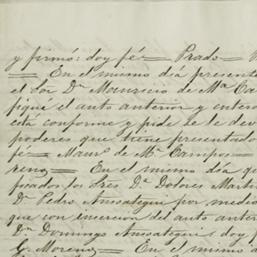 y firmó: doy fé= Prado=
= En el mismo dia present
el Sor Dn Mauricio de Ma Ca
fiqué el auto anterior y entera
está conforme y pide se le dev
poderes que tiene presentado
fé= Maurº de Ma Campos=
reno= En el mismo dia q
posados los Sres Da Dolores Marti
Dn Pedro Aussategui por medio
que con insercion del auto anter
Dn Domingo Aussategui doy f
G. Moreno= En el mismo a